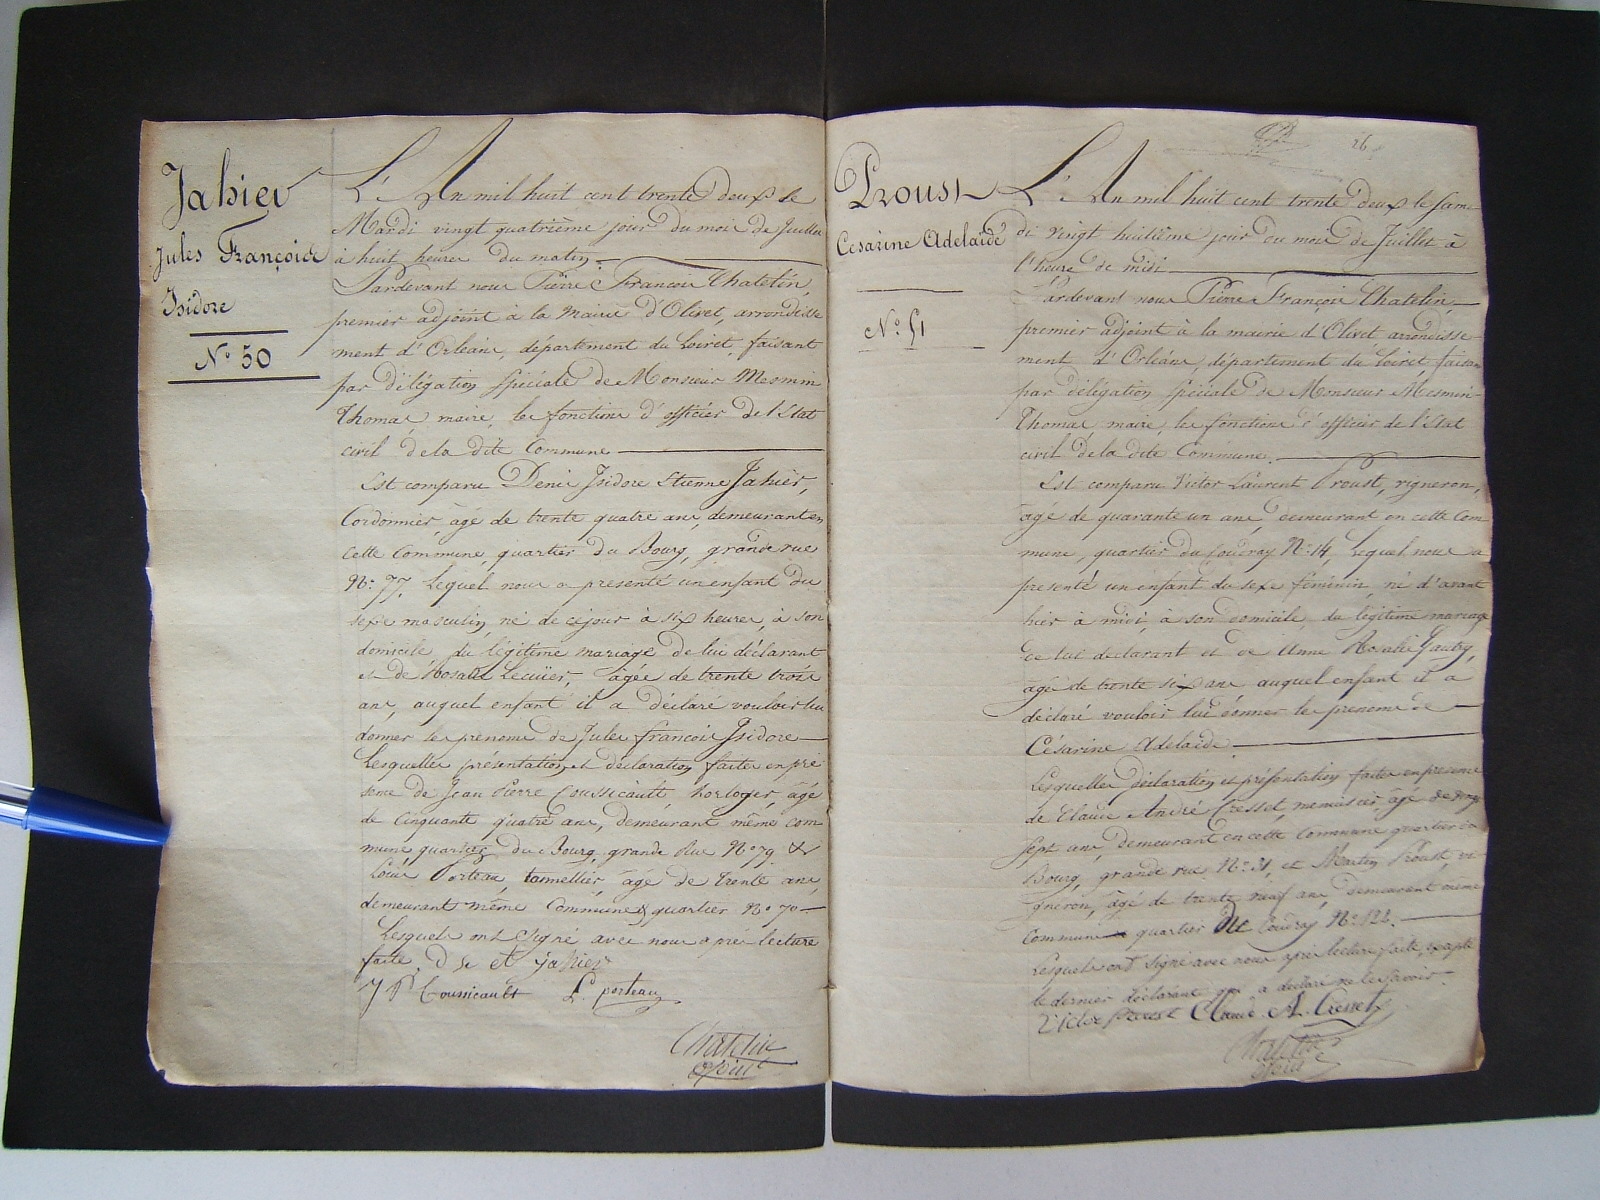 Jahier
Jules François
Isidore
N° 50
L'An mil huit cent trente deux le
Mardi vingt quatrième jour du mois de Juillet
à huit heures du matin.
Pardevant nous Pierre François Chatelin,
premier adjoint à la Mairie d'Olivet, arrondisse
ment d'Orléans, département du Loiret, faisant
par délégation spéciale de Monsieur Mesmin
Thomas, maire, les fonctions d'officier de l'Etat
civil de la dite Commune
Est comparu Denis Isidore Etienne Jahier,
Cordonnier, âgé de trente quatre ans, demeurant en
cette Commune, quartier du Bourg, grande rue
N°. 77, Lequel nous a présenté un enfant du
sexe masculin, né de ce jour à six heures, à son
domicile, du légitime mariage de lui déclarant
et de Rosalie Lecuier, âgée de trente trois
ans, auquel enfant il a déclaré vouloir lui
donner les prénoms de Jules françois Isidore
Lesquelles présentation et déclaration faites en pré
sence de Jean Pierre Coussicault, horloger, âgé
de Cinquante quatre ans, demeurant même com
mune quartier du Bourg, grande Rue N° 79 &
Louis Porteau, tonnellier, âgé de trente ans,
demeurant même Commune & quartier N° 70
Lesquels ont signé avec nous après lecture
faite. D is et Jahier
J P Coussicault L. porteau
Chatelin
adjoint
26
Proust
Cesarine Adelaïde
N° 51
L'An mil huit cent trente deux le Same
di vingt huitième jour du mois de Juillet à
l'heure de midi
Pardevant nous Pierre François Chatelin,
premier adjoint à la mairie d'Olivet, arrondisse
ment d'Orléans, département du Loiret, faisant
par délégation spéciale de Monsieur Mesmin
Thomas, maire, les fonctions d'officier de l'Etat
civil de la dite Commune.
Est comparu Victor Laurent Proust, vigneron,
âgé de quarante un ans, demeurant en cette Com
mune, quartier du Coudray N°. 14, Lequel nous a
présenté un enfant du sexe féminin, né d'avant
hier à midi, à son domicile, du légitime mariage
de lui déclarant et de Anne Rosalie Jautry,
âgé de trente six ans auquel enfant il a
déclaré vouloir lui donner les prénoms de
Césarine Adelaïde
Lesquelles déclaration et présentation faites en présence
de Claude André Cresset, menuisier, âgé de vingt
sept ans, demeurant en cette Commune quartier du
Bourg, grande rue N°. 31, et Martin Proust, vi
gneron, âgé de trente neuf ans, demeurant même
Commune quartier du Coudray N°. 122.
Lesquels ont signé avec nous après lecture faite, excepté
le dernier déclarant qui a déclaré ne le savoir.
Victor Proust Claude A. Cresset
Chatelin
adjoint